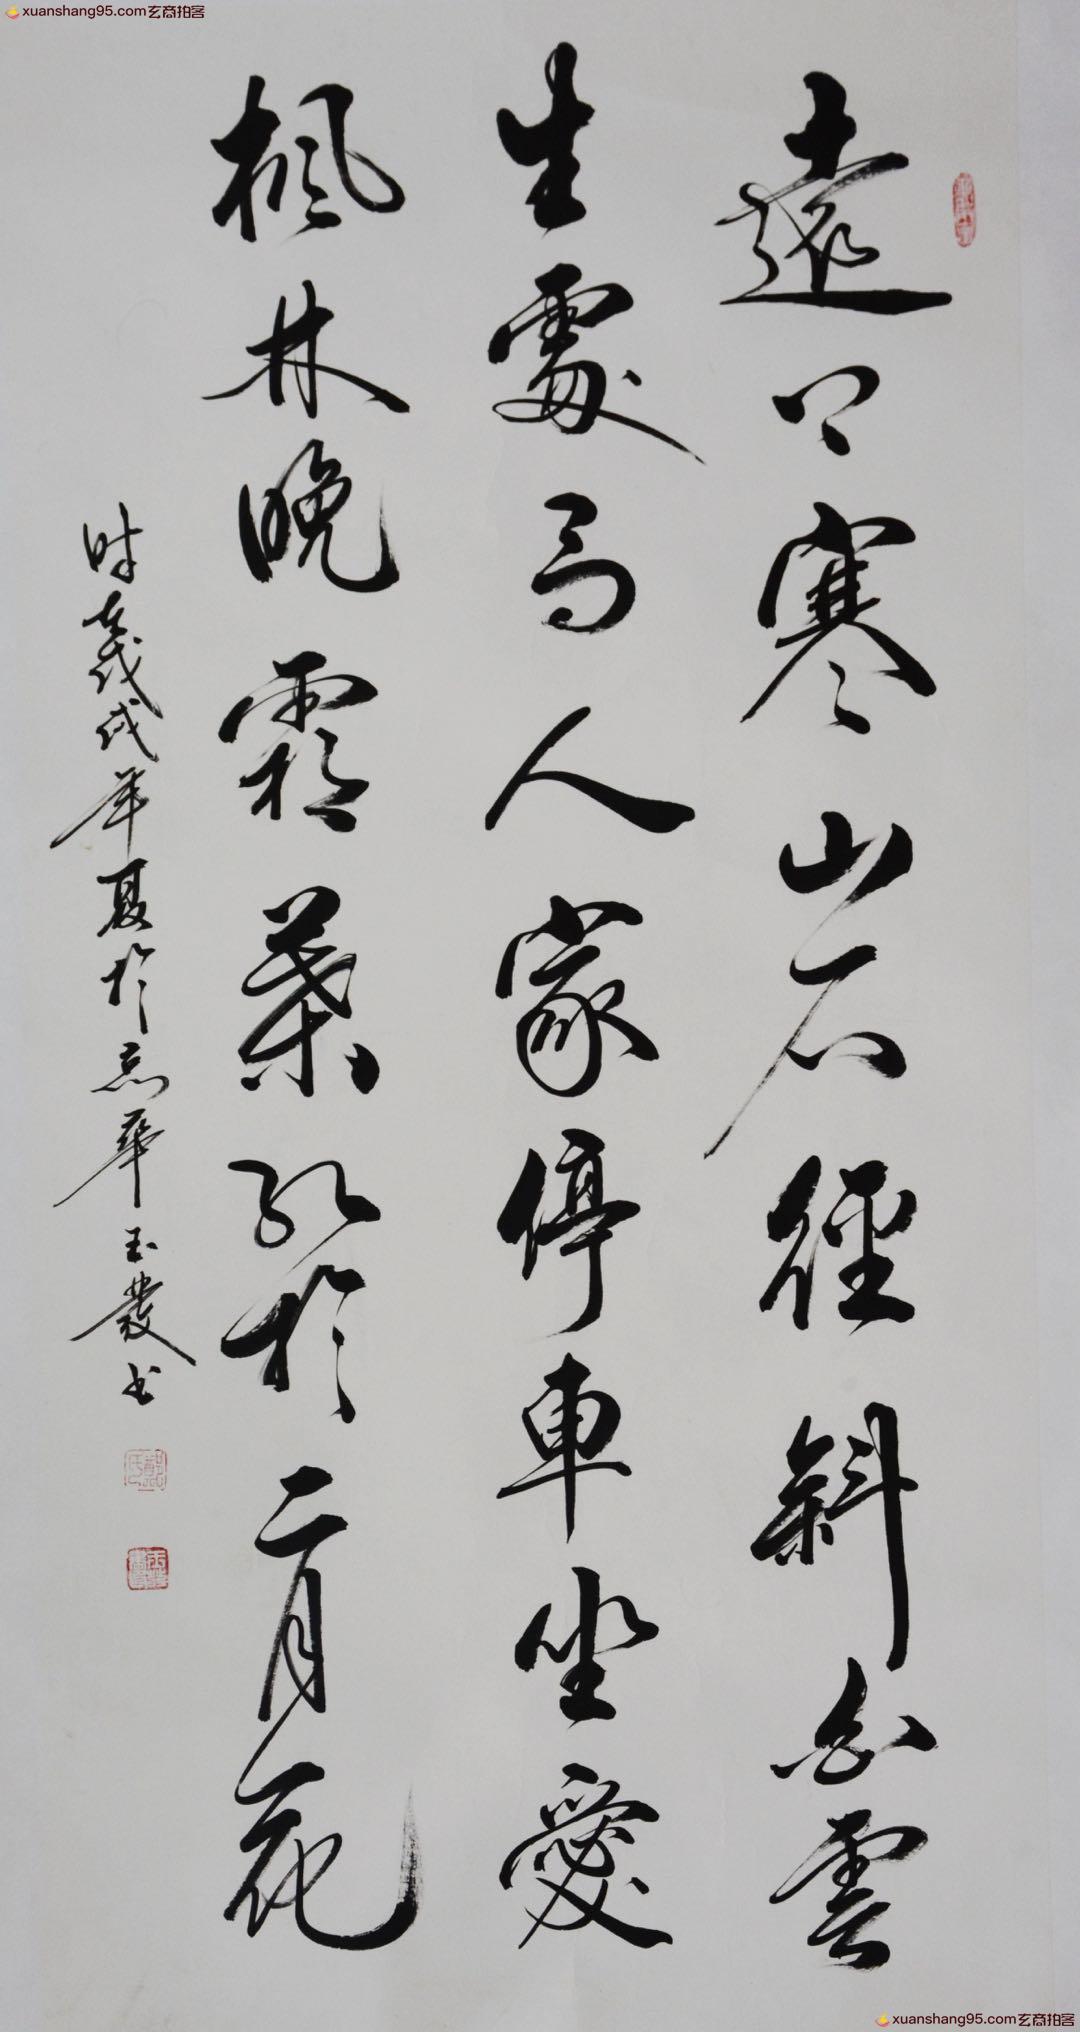 xuanshang95.com玄商拍客
遠上寒山石徑斜白雲
生處有人家停車坐愛
楓林晚霜葉紅於二月花
时在戊戌年夏於京華玉發书
xuanshang95.com玄商拍客